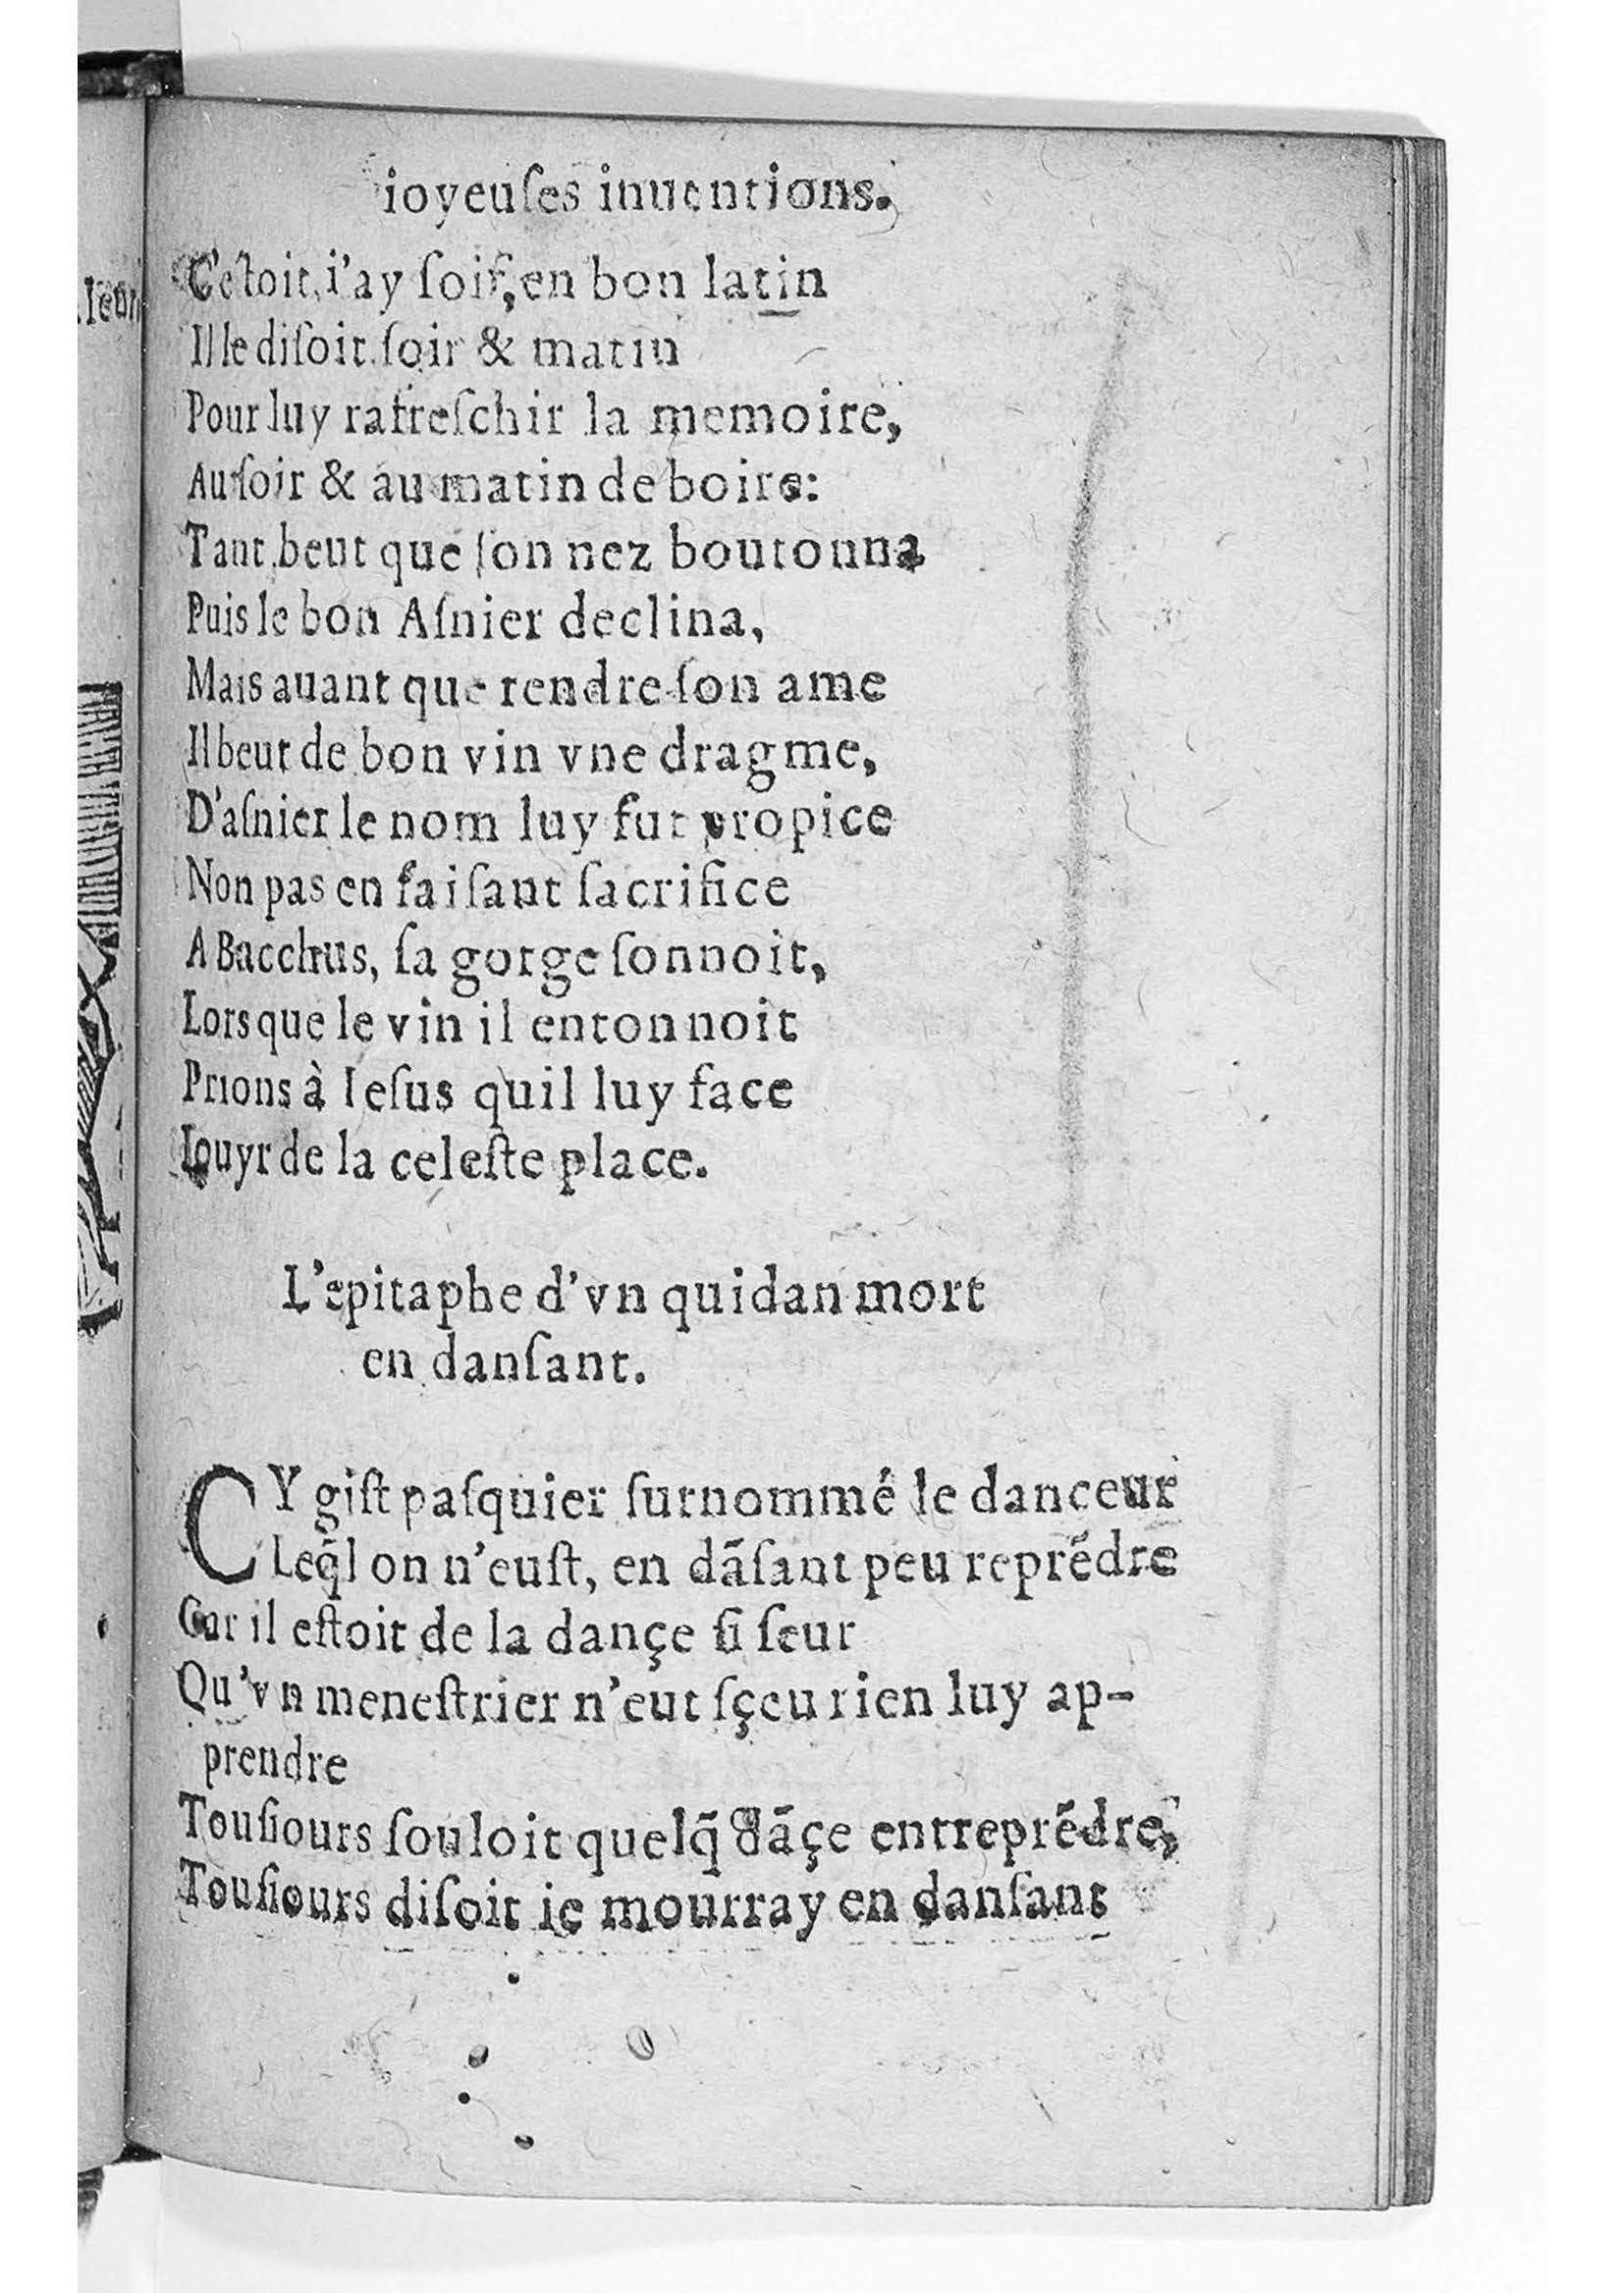 ioyeuſes inuentions.
C'étoit, i'ay ſoif, en bon latin
Il le diſoit ſoir & matin
Pour luy rafreſchir la memoire,
Au ſoir & au matin de boire:
Tant beut que ſon nez boutonna
Puis le bon Aſnier declina,
Mais auant que rendre ſon ame
Il beut de bon vin vne dragme,
D'aſnier le nom luy fut propice
Non pas en faiſant ſacrifice
A Bacchus, ſa gorge ſonnoit,
Lors que le vin il entonnoit
Prions à Ieſus quil luy face
Iouyr de la celeſte place.
L'epitaphe d'vn quidan mort
en danſant.
CY giſt paſquier ſurnommé le danceur
Leq̃l on n'euſt, en dãſant peu reprẽdre
Car il eſtoit de la dançe ſi ſeur
Qu'vn meneſtrier n'eut ſçeu rien luy ap-
prendre
Touſiours ſouloit quelq̃ dãçe entreprẽdre,
Touſiours diſoit ie mourray en danſant